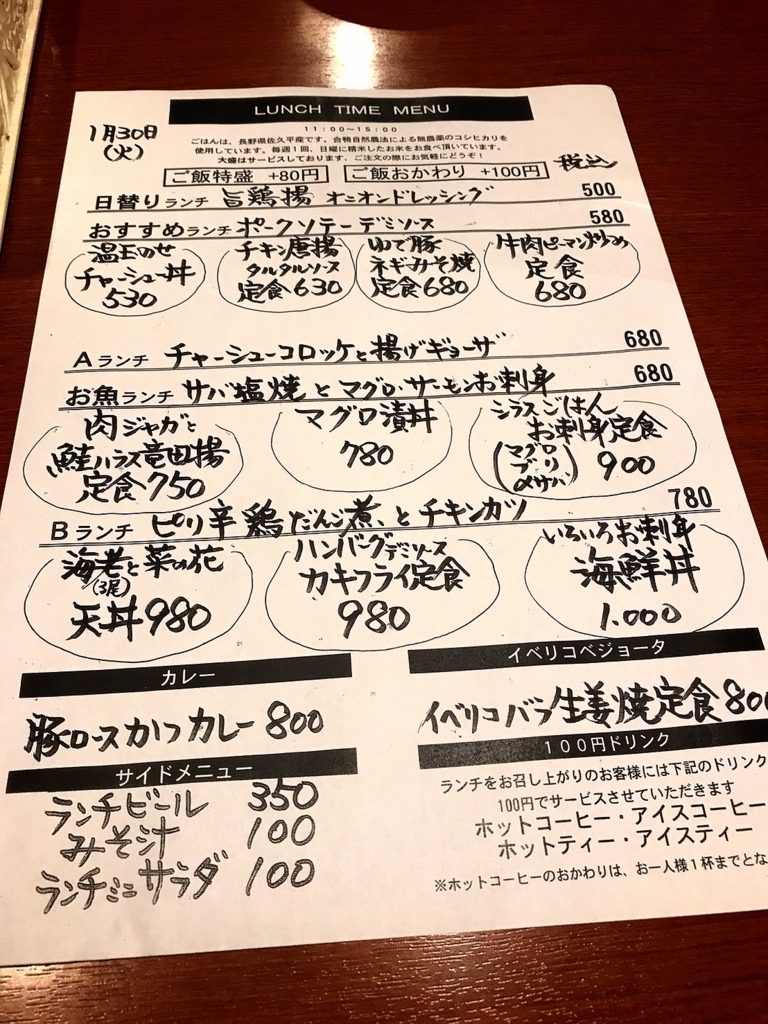 LUNCH TIME MENU
1月30日
(火)
11:00~15:00
ごはんは、長野県佐久平産です。合鴨自然農法による無農薬のコシヒカリを
使用しています。毎週1回、日曜に精米したお米をお食べ頂いています。
大盛はサービスしております、ご注文の際にお気軽にどうぞ!
ご飯特盛 +80円 ご飯おかわり +100円 税込
日替りランチ 旨鶏揚 オニオンドレッシング 500
おすすめランチ ポークソテーデミソース 580
温玉のせ
チャーシュー丼
530
チキン唐揚
タルタルソース
定食630
ゆで豚
ネギみそ焼
定食680
牛肉ピーマン炒め
定食
680
Aランチ チャーシューコロッケと揚げギョーザ 680
お魚ランチ サバ塩焼とマグロ・サーモンお刺身 680
肉ジャガと
鮭ハラス竜田揚
定食750
マグロ漬丼
780
シラスごはん
お刺身定食
(マグロ
ブリ
〆サバ) 900
Bランチ ピリ辛鶏だんご煮とチキンカツ 780
海老と菜の花
(3尾)
天丼980
ハンバーグデミソース
カキフライ定食
980
いろいろお刺身
海鮮丼
1.000
カレー
豚ロースかつカレー 800
イベリコベジョータ
イベリコバラ生姜焼定食 800
サイドメニュー
ランチビール 350
みそ汁 100
ランチミニサラダ 100
100円ドリンク
ランチをお召し上がりのお客様には下記のドリンク
100円でサービスさせていただきます
ホットコーヒー・アイスコーヒー
ホットティー・アイスティー
※ホットコーヒーのおかわりは、お一人様1杯までとな